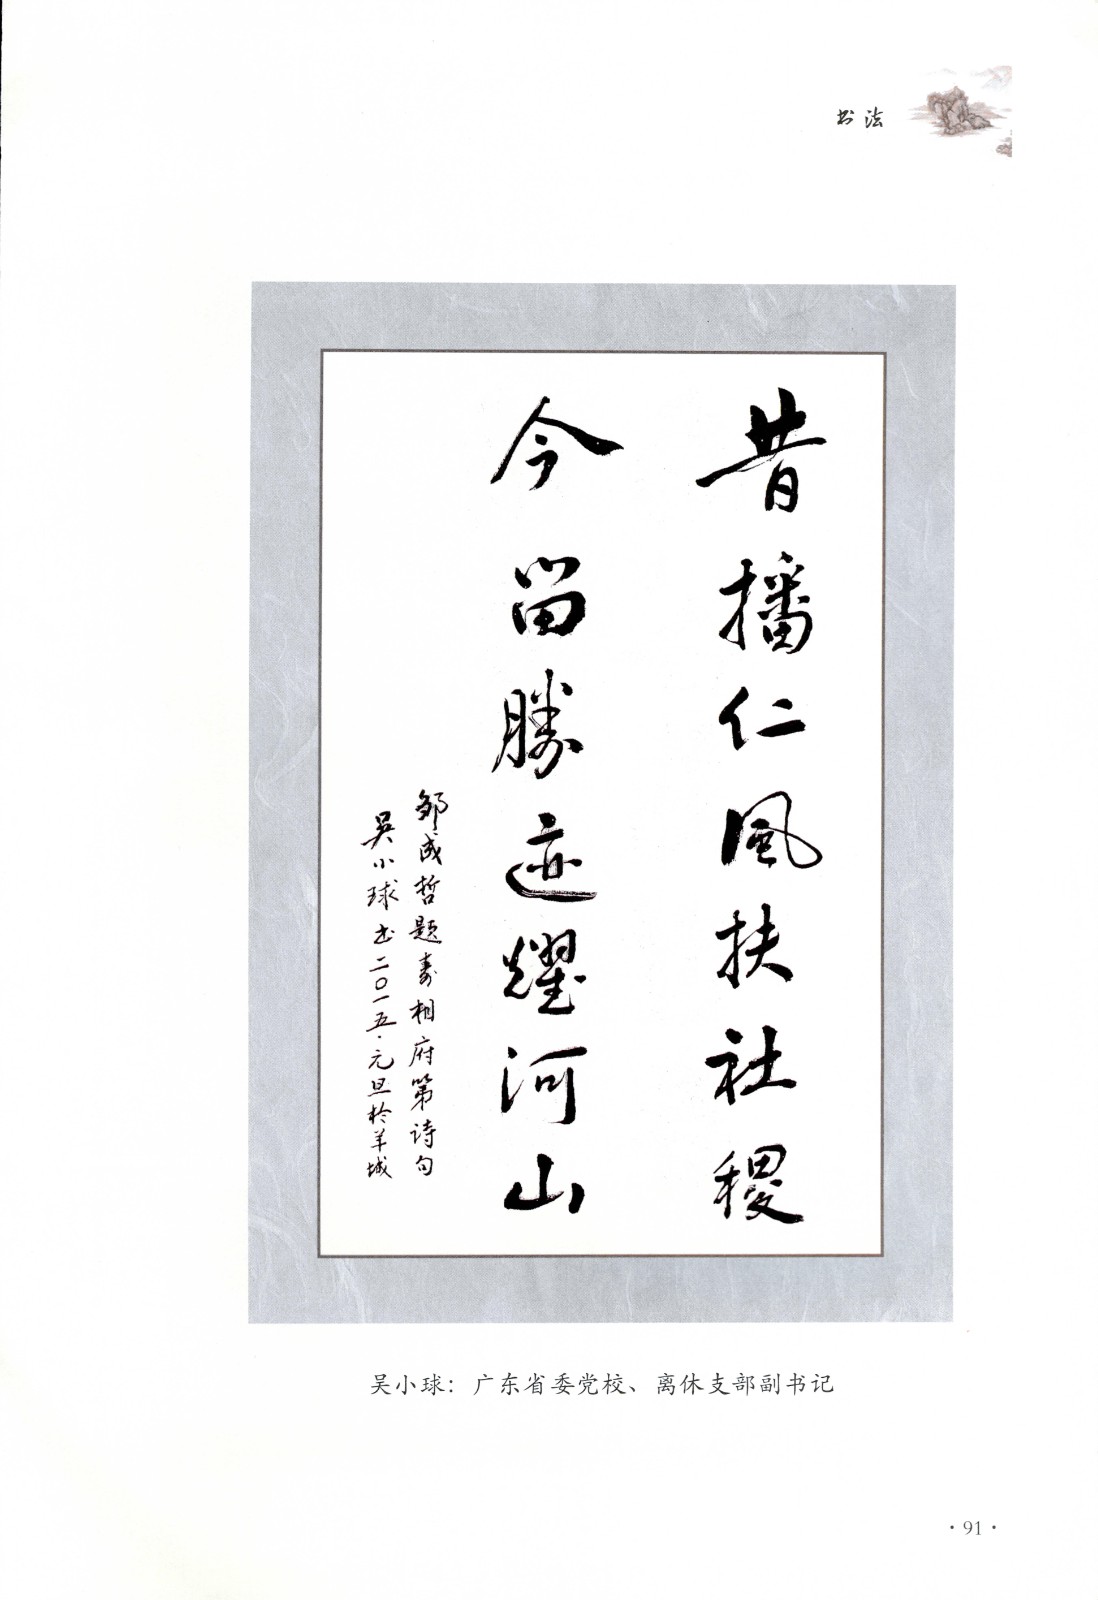 书法
昔播仁風扶社稷
今留勝迹耀河山
邹成哲题寿相府第诗句
吳小球书二〇一五·元旦於羊城
吴小球：广东省委党校、离休支部副书记
·91·